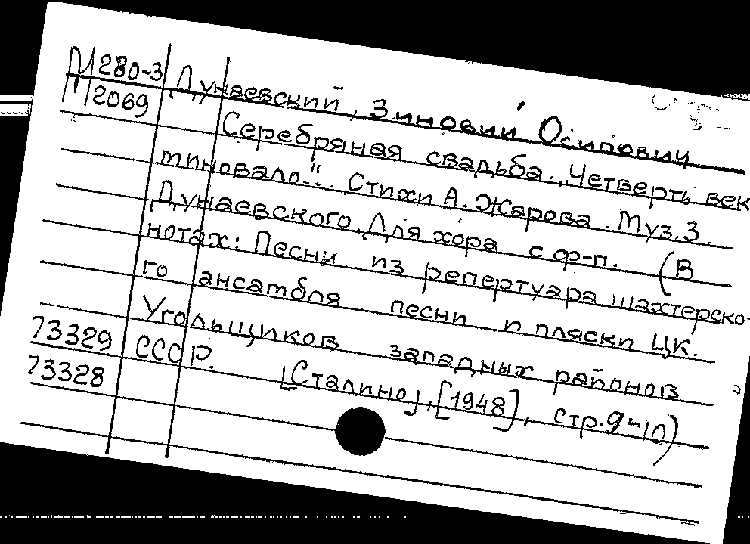 М280-3 Дунаевский, Зиновий Осипович
М2069
Серебряная свадьба. „Четверть век
миновало...". Стихи А. Жарова. Муз. З.
Дунаевского. Для хора с ф-п. (В
нотах: Песни из репертуара шахтерско-
го ансамбля песни и пляски ЦК.
Угольщиков западных районов
73329 СССР. [Сталино], [1948], стр. 9-10)
73328